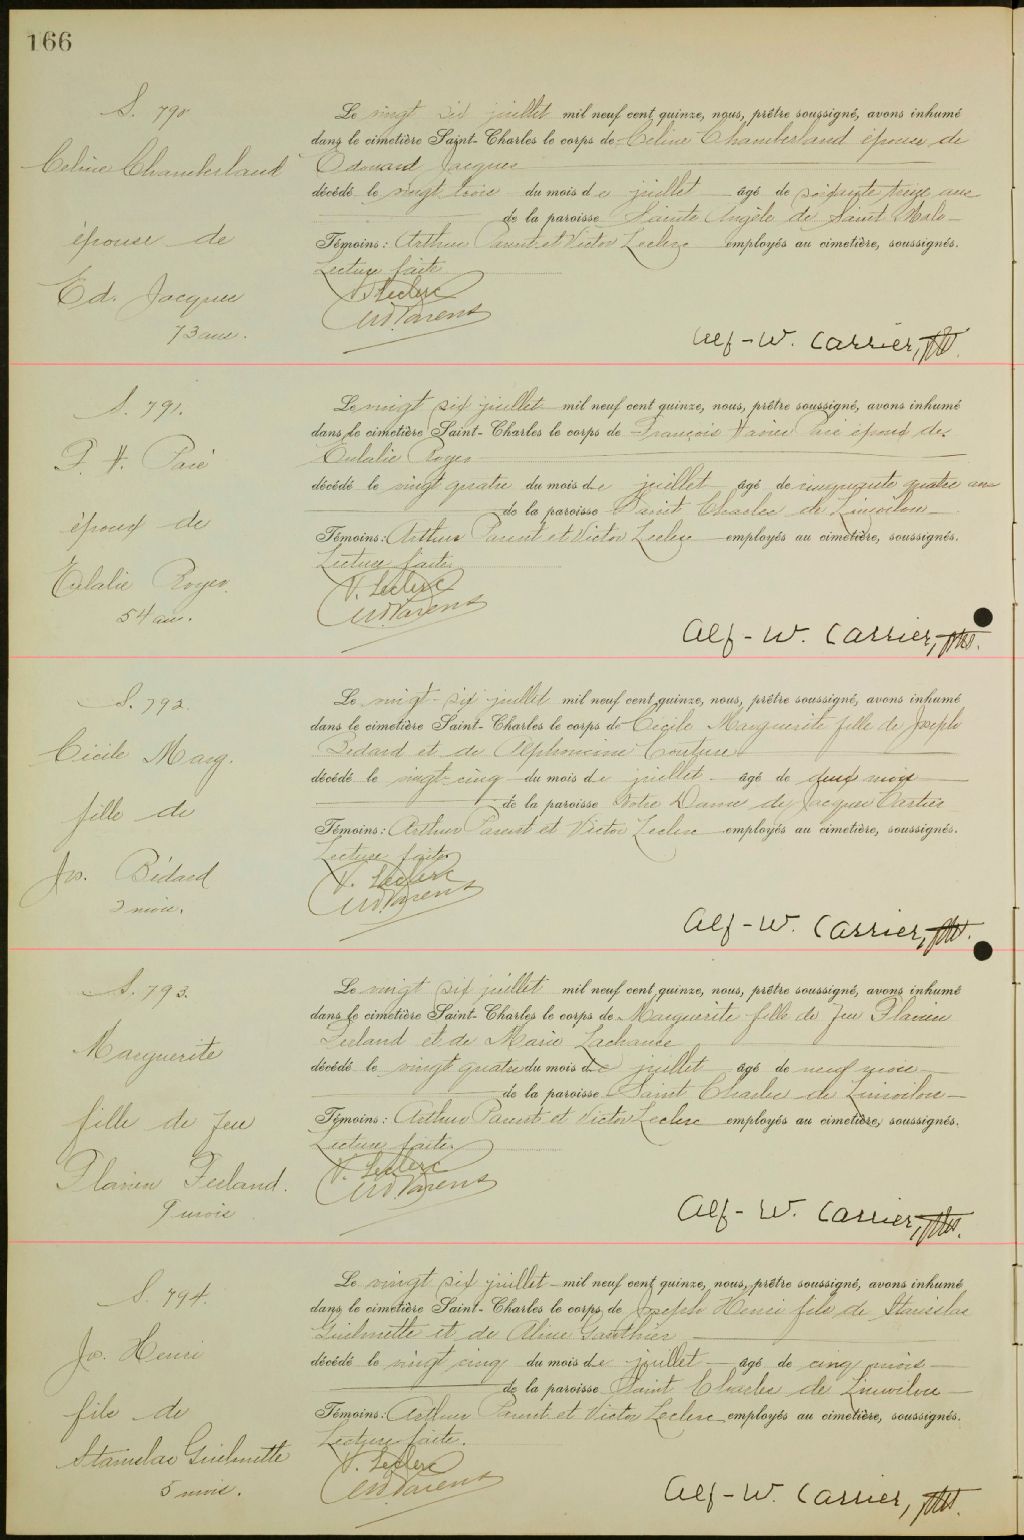 166
S. 790
Celine Chamberland
épouse de
Ed. Jacques
73 ans.
Le vingt six juillet mil neuf cent quinze, nous, prêtre soussigné, avons inhumé
dans le cimetière Saint-Charles le corps de Céline Chamberland épouse de
Edouard Jacques
décédé le vingt trois du mois de juillet âgé de soixante treize ans
de la paroisse Sainte Angèle de Saint Malo
Témoins: Arthur Parent et Victor Leclerc employés au cimetière, soussignés.
Lecture faite
V. Leclerc
Parent
Alf-W. Carrier, ptre.
S. 791.
F. X. Paré
époux de
Eulalie Royer.
54 ans.
Le vingt six juillet mil neuf cent quinze, nous, prêtre soussigné, avons inhumé
dans le cimetière Saint-Charles le corps de François Xavier Paré époux de
Eulalie Royer
décédé le vingt quatre du mois de juillet âgé de cinquante quatre ans
de la paroisse Saint Charles de Limoilou
Témoins: Arthur Parent et Victor Leclerc employés au cimetière, soussignés.
Lecture faite.
V. Leclerc
Parent
Alf-W. Carrier, ptre.
S. 792.
Cécile Marg.
fille de
Jos. Bédard
2 mois.
Le vingt-six juillet mil neuf cent quinze, nous, prêtre soussigné, avons inhumé
dans le cimetière Saint-Charles le corps de Cécile Marguerite fille de Joseph
Bédard et de Alphonsine Couture
décédé le vingt-cinq du mois de juillet âgé de deux mois
de la paroisse Notre Dame de Jacques Cartier
Témoins: Arthur Parent et Victor Leclerc employés au cimetière, soussignés.
Lecture faite.
V. Leclerc
Parent
Alf-W. Carrier, ptre.
S. 793.
Marguerite
fille de feu
Flavien Ferland.
9 mois
Le vingt six juillet mil neuf cent quinze, nous, prêtre soussigné, avons inhumé
dans le cimetière Saint-Charles le corps de Marguerite fille de feu Flavien
Ferland et de Marie Lachance
décédé le vingt quatre du mois de juillet âgé de neuf mois
de la paroisse Saint Charles de Limoilou
Témoins: Arthur Parent et Victor Leclerc employés au cimetière, soussignés.
Lecture faite.
V. Leclerc
Parent
Alf-W. Carrier, ptre.
S. 794.
Jos. Henri
fils de
Stanislas Guilmette
5 mois.
Le vingt six juillet mil neuf cent quinze, nous, prêtre soussigné, avons inhumé
dans le cimetière Saint-Charles le corps de Joseph Henri fils de Stanislas
Guilmette et de Aline Gauthier
décédé le vingt cinq du mois de juillet âgé de cinq mois
de la paroisse Saint Charles de Limoilou
Témoins: Arthur Parent et Victor Leclerc employés au cimetière, soussignés.
Lecture faite.
V. Leclerc
Parent
Alf-W. Carrier, ptre.